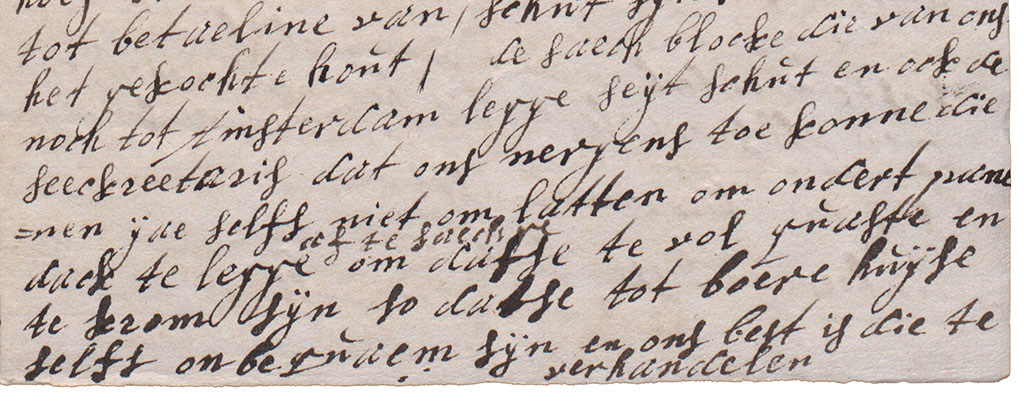 tot betaeline van, schut
het gekochte hout, de saech blocke die van ons
noch tot Amsterdam legge seyt schut en ock de
seeckreetaris dat ons nergens toe konne die
=nen yae selfs niet om latten om ondert panne
af te saechge
dack te legge om datse te vol quaste en
te krom sijn so datse tot boere huyse
selfs onbequaem sijn en ons best is die te
verhandelen